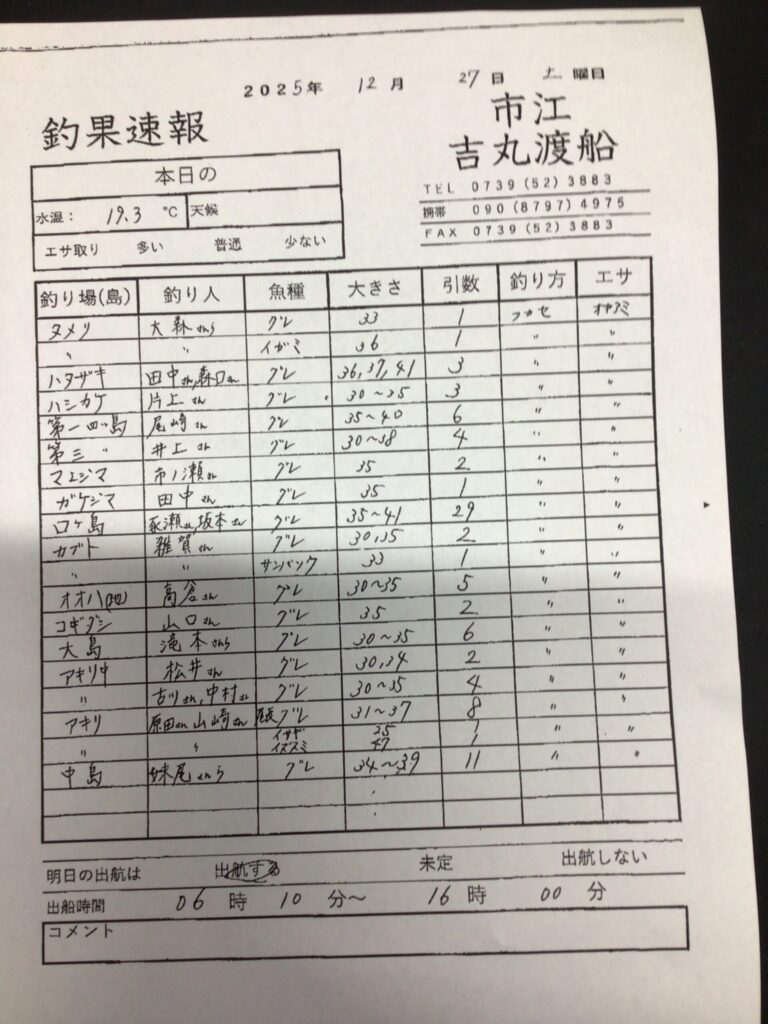 2025年 12月 27日 土曜日
釣果速報
市江
吉丸渡船
TEL 0739(52)3883
携帯 090(8797)4975
FAX 0739(52)3883
本日の
水温: 19.3 ℃ 天候
エサ取り 多い 普通 少ない
釣り場(島) 釣り人 魚種 大きさ 引数 釣り方 エサ
ヌメリ 大森さんら グレ 33 1 フカセ オキアミ
〃 イガミ 36 1 〃 〃
ハタザキ 田中さん,森口さん グレ 36,37,41 3 〃 〃
ハシカケ 片上さん グレ 30〜35 3 〃 〃
第一四ツ島 尾崎さん グレ 35〜40 6 〃 〃
第三 〃 井上さん グレ 30〜38 4 〃 〃
マエジマ 市ノ瀬さん グレ 35 2 〃 〃
ガケジマ 田中さん グレ 35 1 〃 〃
口ヶ島 瀬さん,坂本さん グレ 35〜41 29 〃 〃
カブト 雑賀さん グレ 30,35 2 〃 〃
〃 〃 サンバソウ 33 1 〃 〃
オオハ 高倉さん グレ 30〜35 5 〃 〃
コギダシ 山口さん グレ 35 2 〃 〃
大島 滝本さんら グレ 30〜35 6 〃 〃
アキリ中 松井さん グレ 30,34 2 〃 〃
〃 古川さん,中村さん グレ 30〜35 4 〃 〃
アキリ 原田さん 山崎さん 尾長グレ 31〜37 8 〃 〃
〃 〃 イサギ 25 1 〃 〃
イズスミ 47 1
中島 妹尾さんら グレ 34〜39 11 〃 〃
明日の出航は 出航する 未定 出航しない
出船時間 06時 10分〜 16時 00分
コメント